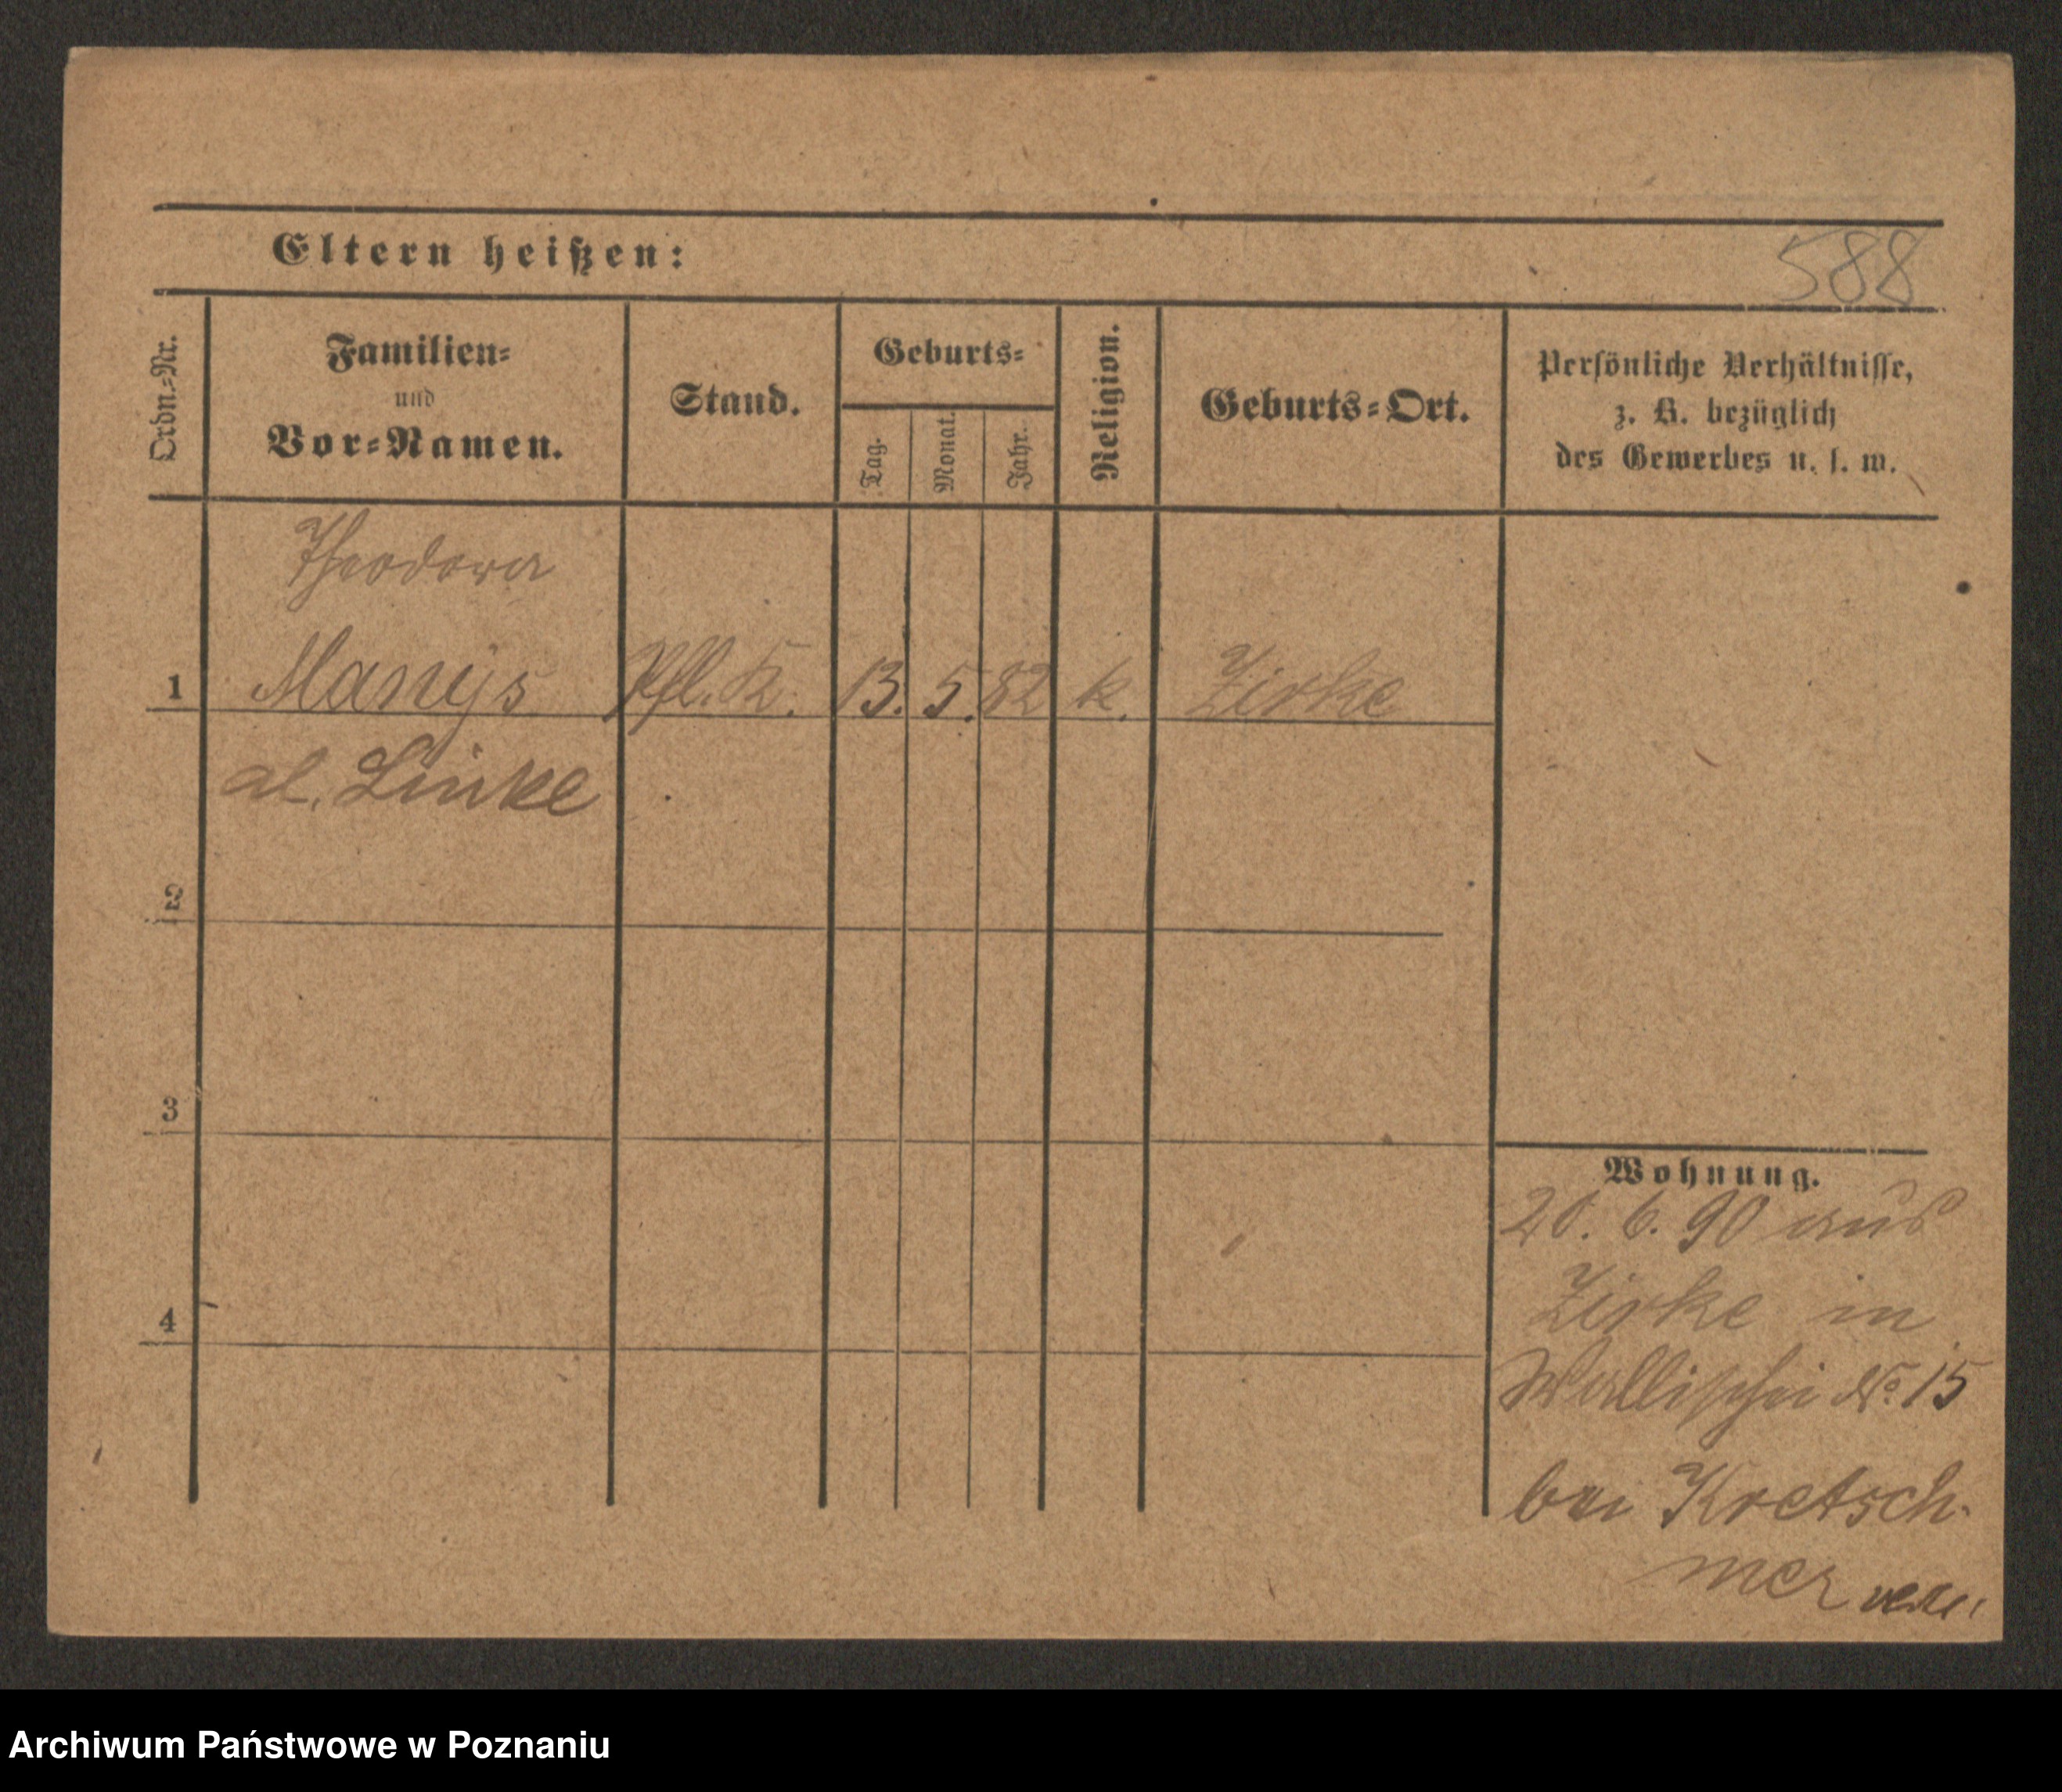 Eltern heißen:
588
Ordn.=Nr.
Familien=
und
Vor=Namen.
Stand.
Geburts=
Tag.
Monat.
Jahr.
Religion.
Geburts=Ort.
Persönliche Verhältnisse,
z. B. bezüglich
des Gewerbes u. s. w.
Theodora
1 Pfl. K. 13. 5. 82 k. Zirke
al. Linke
2
3
4
Wohnung.
20. 6. 90 aus
Zirke in
Wallischei No 15
bei Kretsch-
mer
Archiwum Państwowe w Poznaniu